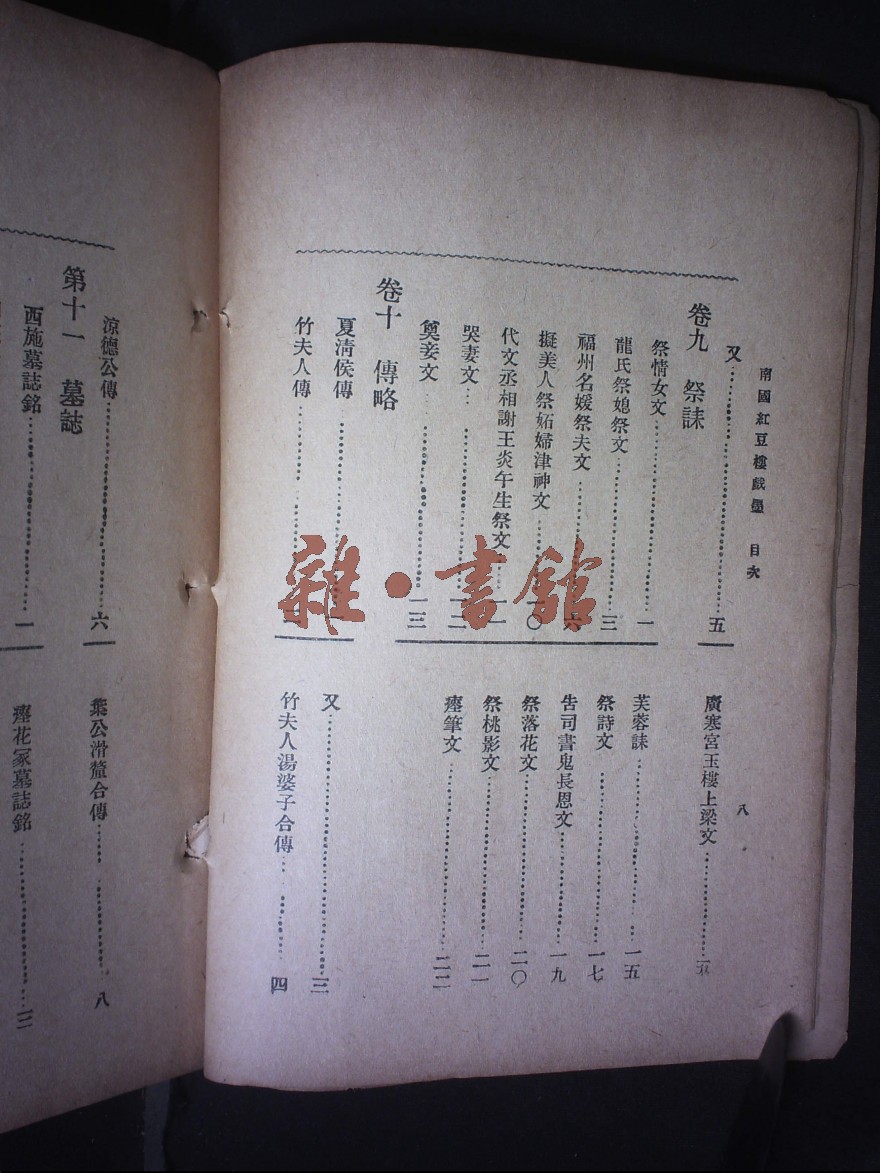 南國紅豆樓戲墨 目次 八
又 五
廣寒宮玉樓上梁文
卷九 祭誄
祭情女文 一
芙蓉誄 一五
龍氏祭媳祭文 三
祭詩文 一七
福州名媛祭夫文 六
告司書鬼長恩文 一九
擬美人祭妬婦津神文 一〇
祭落花文 二〇
代文丞相謝王炎午生祭文
祭桃影文 二一
哭妻文 一二
瘞筆文 二二
奠妾文 一三
卷十 傳略
夏淸侯傳
又 三
竹夫人傳
竹夫人湯婆子合傳 四
涼德公傳 六
葉公滑釐合傳 八
第十一 墓誌
西施墓誌銘 一
瘞花冢墓誌銘
雜·書館